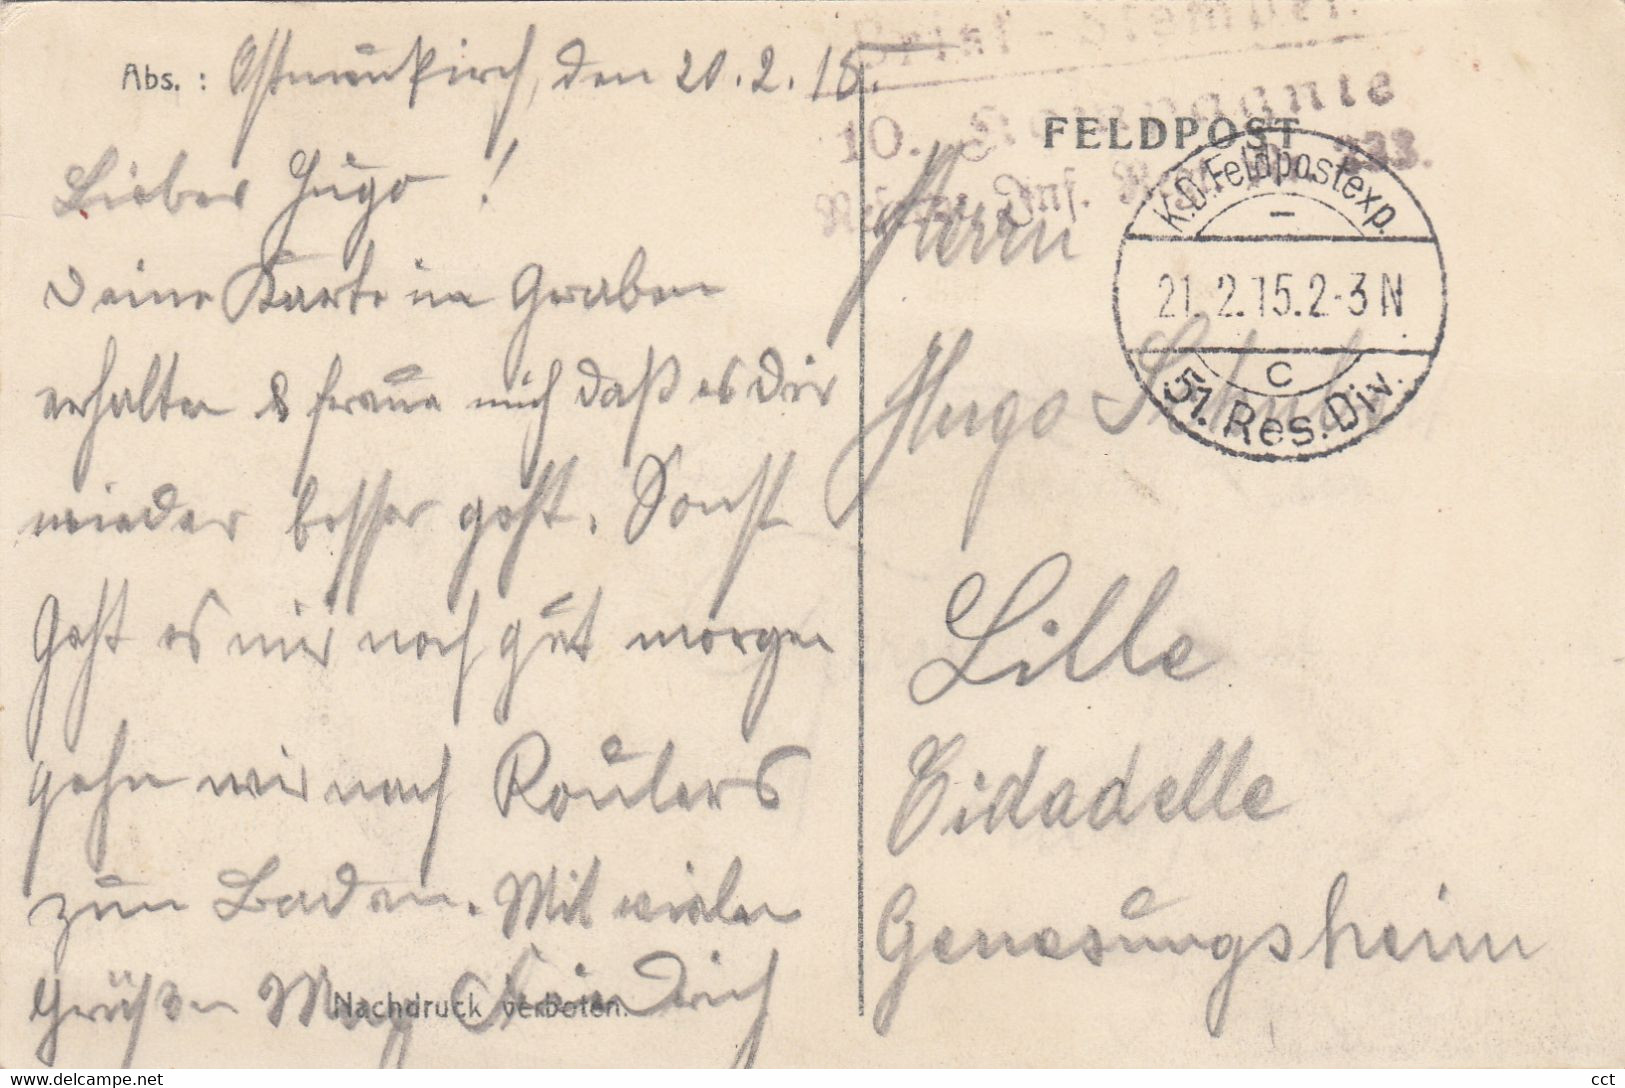 Abs.: Ostneukirch, den 20.2.15.
Lieber Hugo!
Deine Karte im Graben
erhalten & freue mich daß es Dir
wieder besser geht. Sonst
geht es mir noch gut morgen
gehn wir nach Roulers
zum Baden. Mit vielen
Grüßen Max
Nachdruck verboten.
Brief-Stempel.
10. Kompagnie
Reserve Inf. Regt. 233.
FELDPOST
K.D. Feldpostexp.
21.2.15.2-3N
c
51. Res. Div.
Herrn
Hugo
Lille
Cidadelle
Genesungsheim
cct
www.delcampe.net